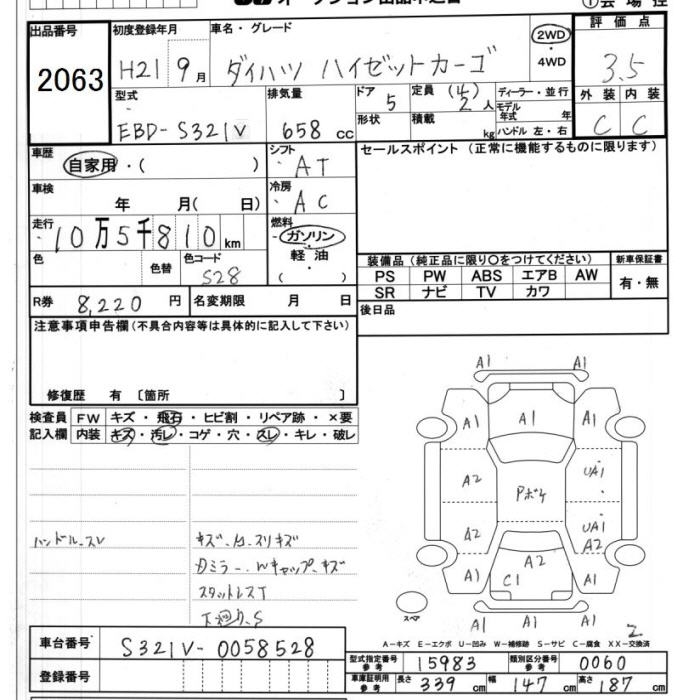 出品番号 2063
初度登録年月 H21 9月
車名・グレード ダイハツ ハイゼットカーゴ
2WD・4WD
評価点 3.5
外装 内装
C C
型式 EBD-S321V
排気量 658 cc
ドア 5
定員 (4) 2人
ディーラー・並行
モデル年式 年
形状
積載 kg
ハンドル 左・右
車歴 自家用・( )
シフト AT
セールスポイント (正常に機能するものに限ります)
車検 年 月( 日)
冷房 AC
走行 10万5千810km
燃料 ガソリン・軽油 ( )
色
色替
色コード S28
装備品 (純正品に限り○をつけてください)
新車保証書
PS PW ABS エアB AW
有・無
SR ナビ TV カワ
R券 8,220円
名変期限 月 日
後日品
注意事項申告欄(不具合内容等は具体的に記入して下さい)
修復歴 有 〔箇所 〕
検査員 FW キズ・飛石・ヒビ割・リペア跡・×要
記入欄 内装 キズ・汚レ・コゲ・穴・スレ・キレ・破レ
A1 A1
A1 A1 A1
A2 Pボケ UA1
A2 UA1 A2
A1 C1 A2 A1
A1 A1 A1
スペア
2
ハンドル、スレ
スタットレスT
A-キズ E-エクボ U-凹み W-補修跡 S-サビ C-腐食 XX-交換済
車台番号 S321V-0058528
登録番号
型式指定番号参考 15983
類別区分番号参考 0060
車庫証明用参考 長さ 339cm 幅 147cm 高さ 187cm